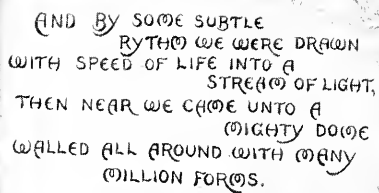 AND BY SOME SUBTLE
RYTHM WE WERE DRAWN
WITH SPEED OF LIFE INTO A
STREAM OF LIGHT,
THEN NEAR WE CAME UNTO A
MIGHTY DOME
WALLED ALL AROUND WITH MANY
MILLION FORMS.